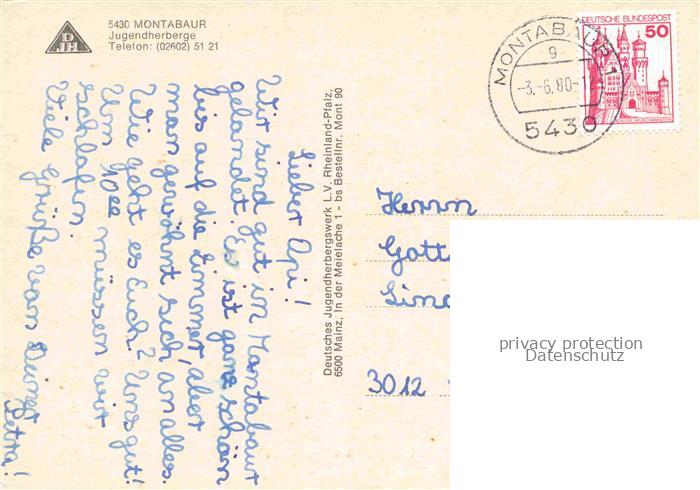 5430 MONTABAUR
Jugendherberge
Telefon: (02602) 51 21
DJH
Lieber Opi!
Wir sind gut in Montabaur
gelandet. Es ist ganz schön
bis auf die Zimmer, aber
man gewöhnt sich an alles.
Wie geht es Euch? Uns gut!
Um 10 müssen wir
schlafen.
Viele Grüße von Deiner
Petra!
Deutsches Jugendherbergswerk L.V. Rheinland-Pfalz,
6500 Mainz, In der Meielache 1 - bs Bestellnr. Mont 90
MONTABAUR
g
-3.-6.80-1
5430
DEUTSCHE BUNDESPOST
50
Herrn
Gott
Simo
3012
privacy protection
Datenschutz